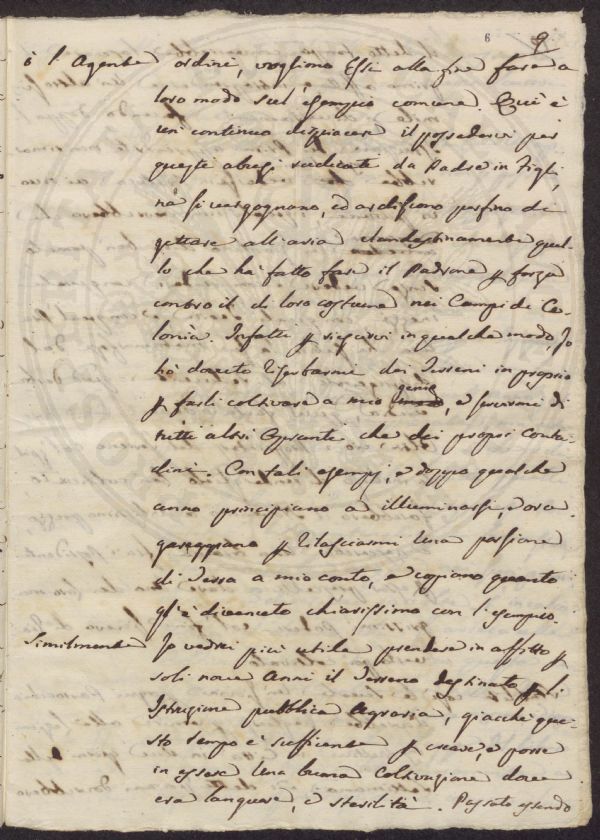 6 9
ò l'Agente ordini, vogliono Essi alla fine fare a
loro modo sul'esempio comune. Quì è
un continuo dispiacere il possedervi per
questi abusi radicati da Padre in Figli,
nè si vergognano, ed ardiscono perfino di
gettare all'aria clandestinamente quel-
lo che hà fatto fare il Padrone p forza
contro il di loro costume nei Campi di Co-
lonìa. Infatti p riuscirvi in qualche modo, Io
hò dovuto riserbarmi dei Terreni in proprio
p farli coltivare a mio genio, e servirmi di
tutti altri Opranti che dei propri conta-
dini. Con tali esempj, e doppo qualche
anno principiano a illuminarsi, e ora
gareggiano p rilasciarmi una porzione
di Terra a mio conto, e copiano quanto
gl'è divenuto chiarissimo con l'esempio.
Similmente Io vedrei più utile prendere in affitto p
soli nove Anni il Terreno destinato p li
Istruzione pubblica Agraria, giacchè que-
sto tempo è sufficiente p creare, e porre
in essere una buona Coltivazione dove
era languore, e sterilità. Passato essendo